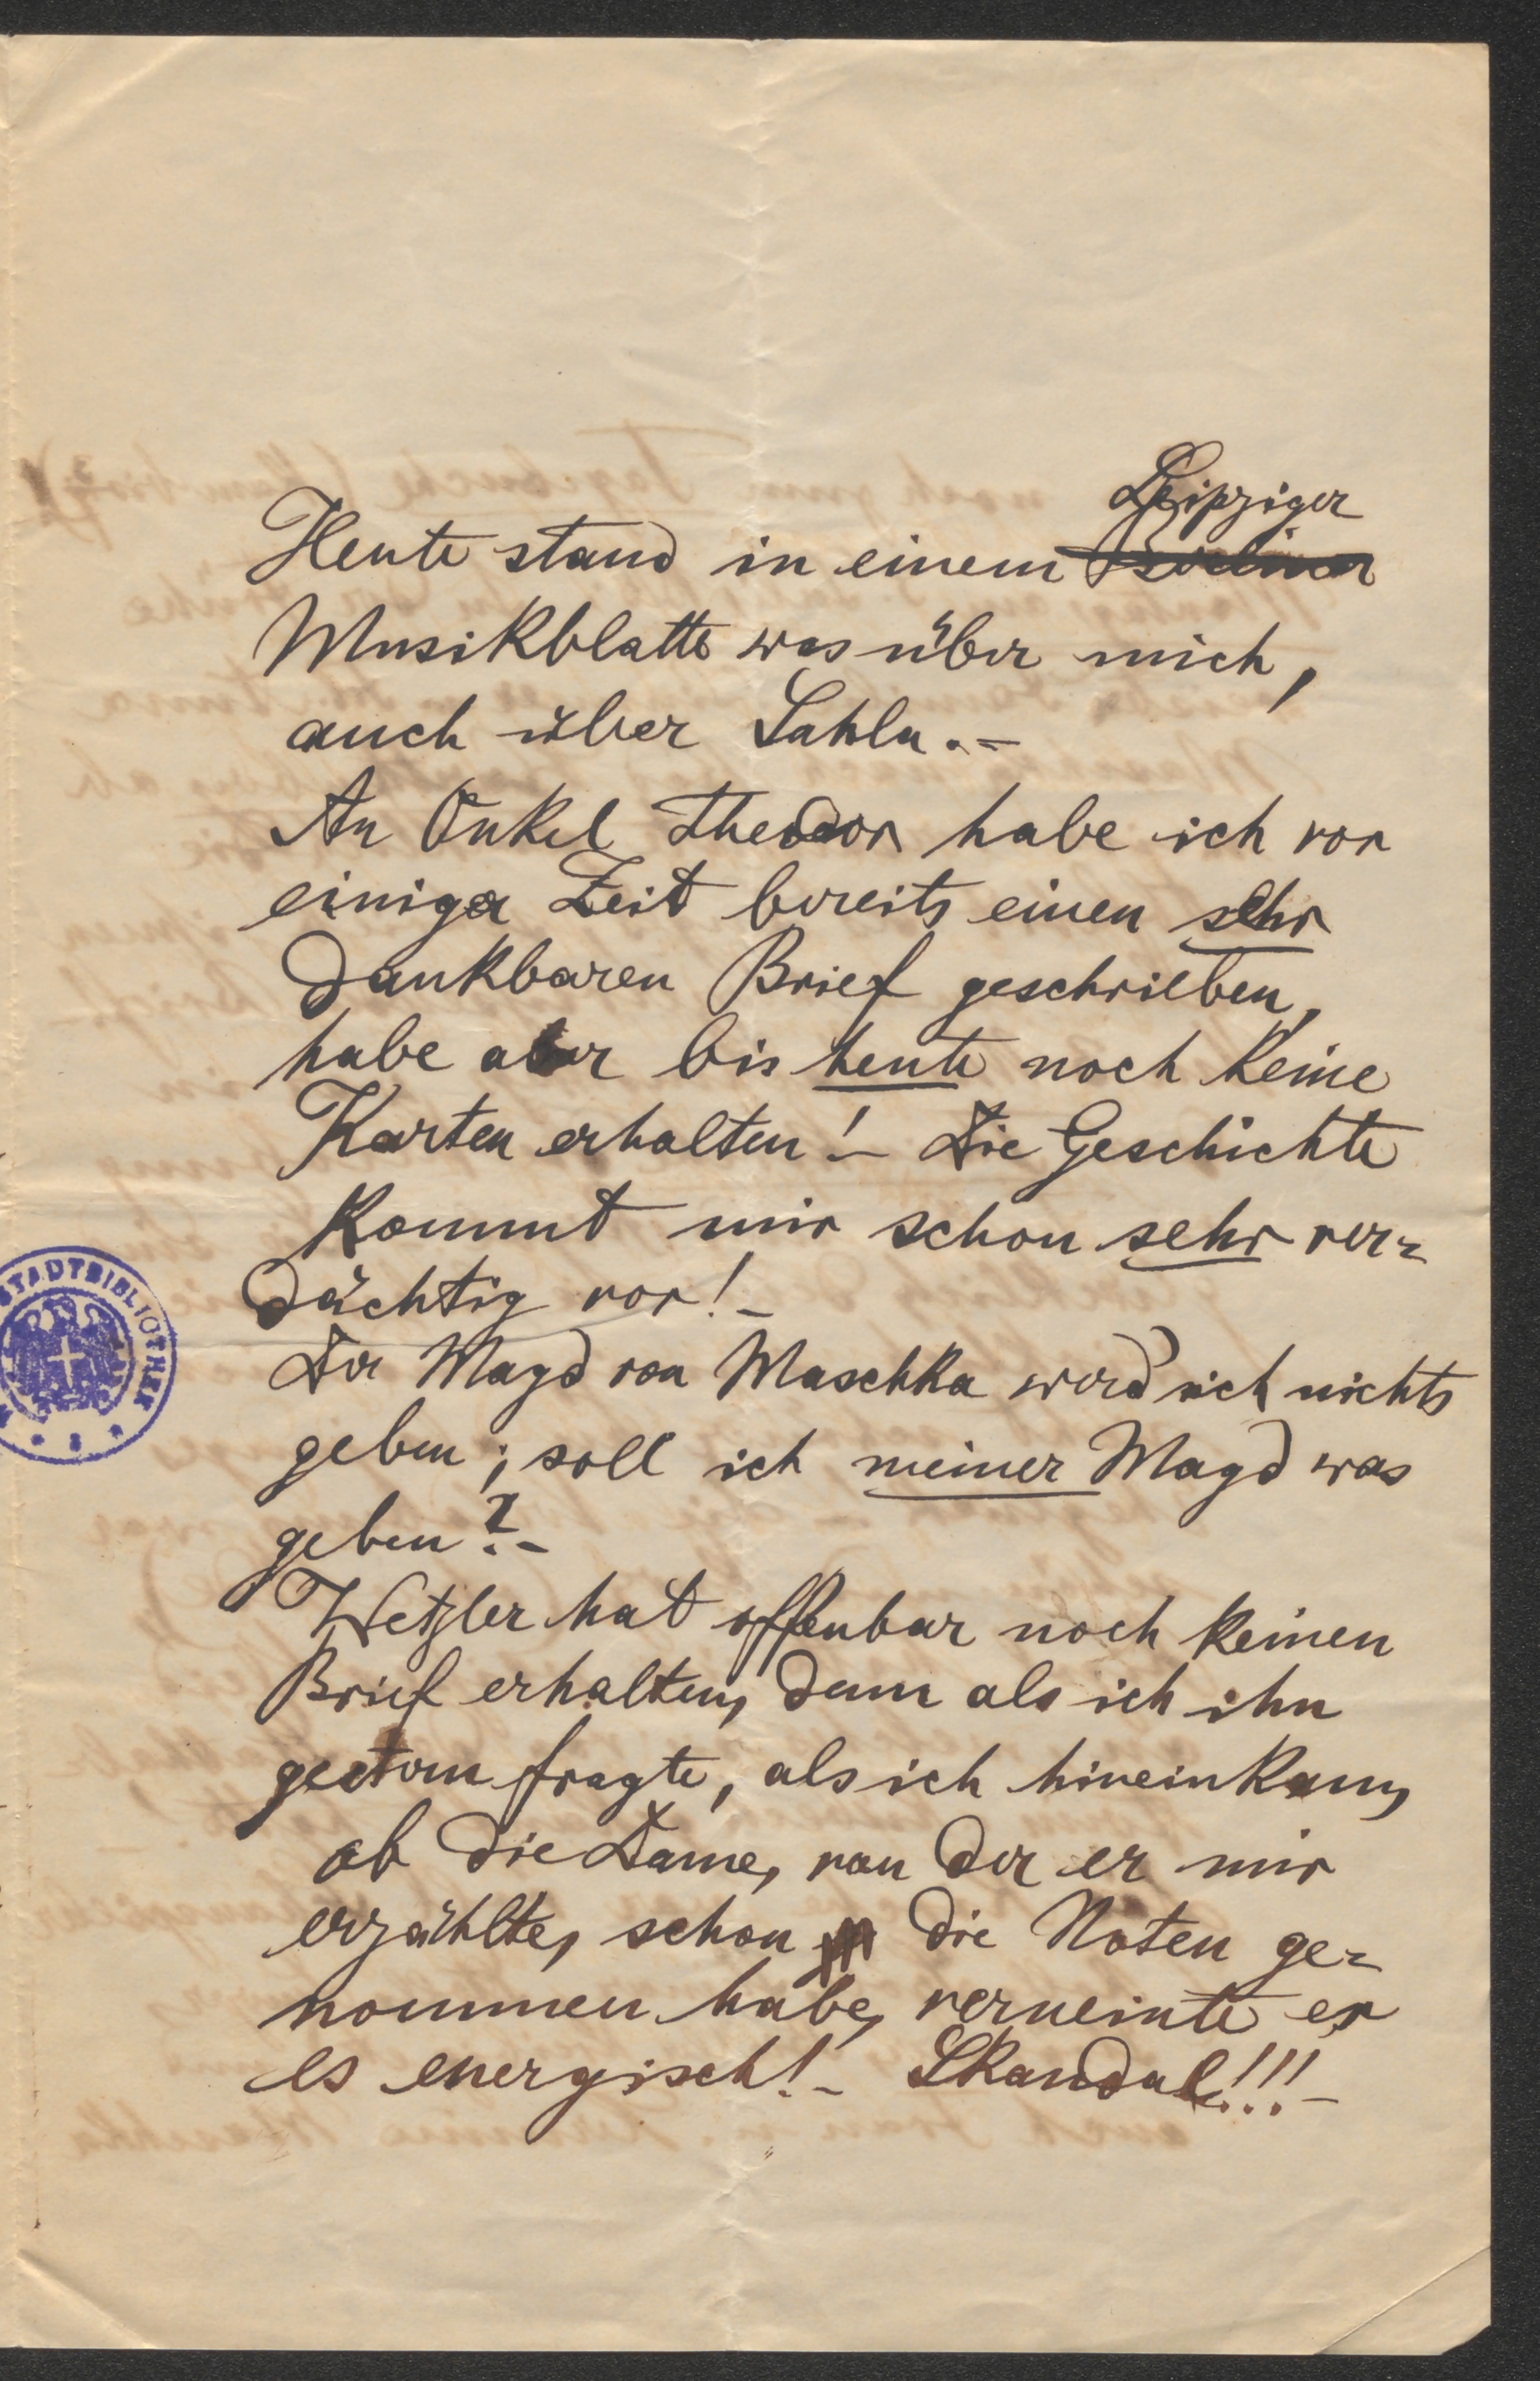 Leipziger
Heute stand in einem Berliner
Musikblatte was über mich,
auch über Sahla.-
An Onkel Theodor habe ich vor
einiger Zeit bereits einen sehr
dankbaren Brief geschrieben,
habe aber bis heute noch keine
Karten erhalten! - Die Geschichte
kommt mir schon sehr ver=
dächtig vor! -
Der Magd von Maschka werd ich nichts
geben; soll ich meiner Magd was
geben? -
Wetzler hat offenbar noch keinen
Brief erhalten, denn als ich ihn
gestern fragte, als ich hineinkam,
ob die Dame, von der er mir
erzählte, schon die Noten ge=
nommen habe, verneinte er
es energisch! - Skandal!!! -
STADTBIBLIOTHEK